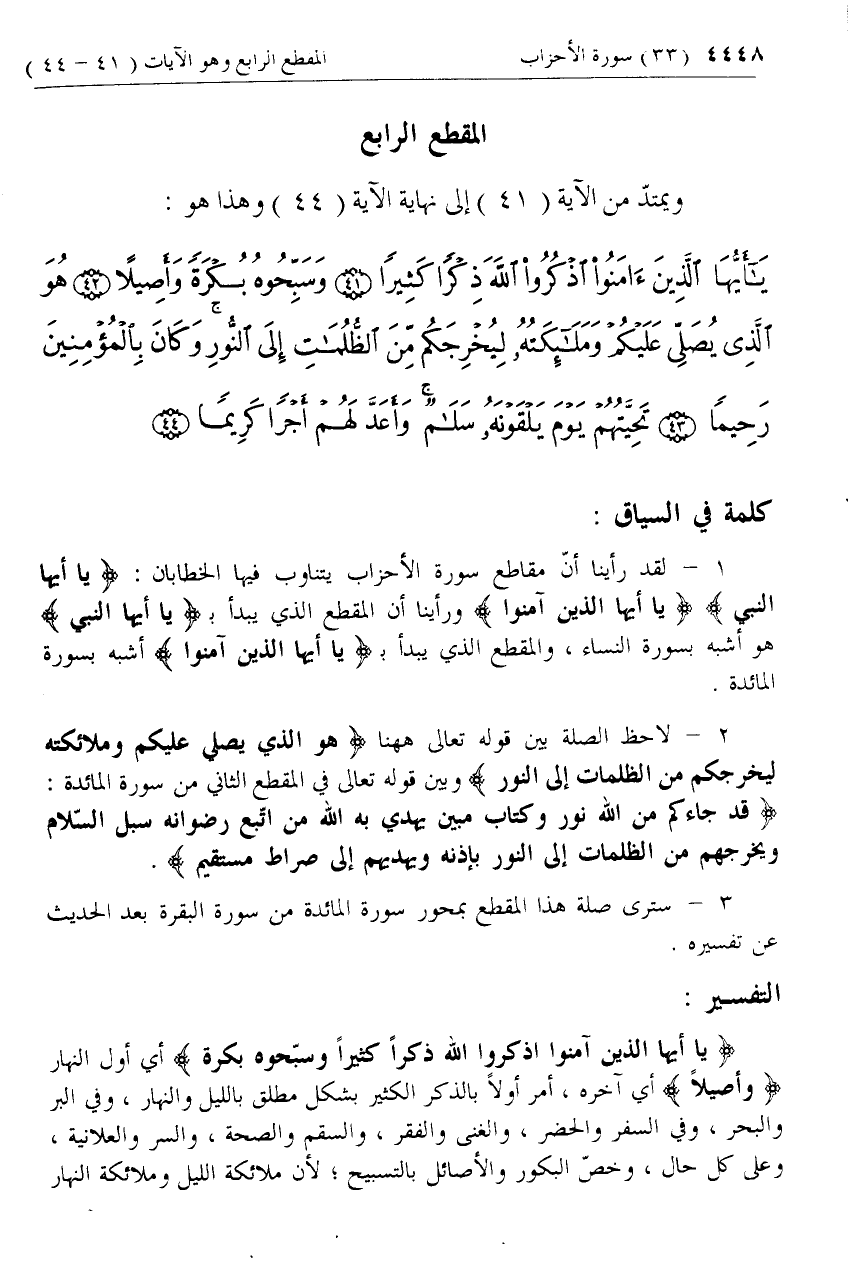 ٤٤٤٨ ( ٣٣ ) سورة الأحزاب المقطع الرابع وهو الآيات ( ٤١ – ٤٤ )
المقطع الرابع
ويمتدّ من الآية ( ٤١ ) إلى نهاية الآية ( ٤٤ ) وهذا هو :
يَٰٓأَيُّهَا ٱلَّذِينَ ءَامَنُوا۟ ٱذْكُرُوا۟ ٱللَّهَ ذِكْرًا كَثِيرًا ﴿٤١﴾ وَسَبِّحُوهُ بُكْرَةً وَأَصِيلًا ﴿٤٢﴾ هُوَ
ٱلَّذِى يُصَلِّى عَلَيْكُمْ وَمَلَٰٓئِكَتُهُۥ لِيُخْرِجَكُم مِّنَ ٱلظُّلُمَٰتِ إِلَى ٱلنُّورِ ۚ وَكَانَ بِٱلْمُؤْمِنِينَ
رَحِيمًا ﴿٤٣﴾ تَحِيَّتُهُمْ يَوْمَ يَلْقَوْنَهُۥ سَلَٰمٌ ۚ وَأَعَدَّ لَهُمْ أَجْرًا كَرِيمًا ﴿٤٤﴾
كلمة في السياق :
١ – لقد رأينا أنّ مقاطع سورة الأحزاب يتناوب فيها الخطابان : ﴿ يا أيها
النبي ﴾ ﴿ يا أيها الذين آمنوا ﴾ ورأينا أن المقطع الذي يبدأ بـ ﴿ يا أيها النبي ﴾
هو أشبه بسورة النساء ، والمقطع الذي يبدأ بـ ﴿ يا أيها الذين آمنوا ﴾ أشبه بسورة
المائدة .
٢ – لاحظ الصلة بين قوله تعالى ههنا ﴿ هو الذي يصلي عليكم وملائكته
ليخرجكم من الظلمات إلى النور ﴾ وبين قوله تعالى في المقطع الثاني من سورة المائدة :
﴿ قد جاءكم من الله نور وكتاب مبين يهدي به الله من اتّبع رضوانه سبل السّلام
ويخرجهم من الظلمات إلى النور بإذنه ويهديهم إلى صراط مستقيم ﴾ .
٣ – سترى صلة هذا المقطع بمحور سورة المائدة من سورة البقرة بعد الحديث
عن تفسيره .
التفسير :
﴿ يا أيها الذين آمنوا اذكروا الله ذكراً كثيراً وسبّحوه بكرة ﴾ أي أول النهار
﴿ وأصيلاً ﴾ أي آخره ، أمر أولاً بالذكر الكثير بشكل مطلق بالليل والنهار ، وفي البر
والبحر ، وفي السفر والحضر ، والغنى والفقر ، والسقم والصحة ، والسر والعلانية ،
وعلى كل حال ، وخصّ البكور والأصائل بالتسبيح ؛ لأن ملائكة الليل وملائكة النهار